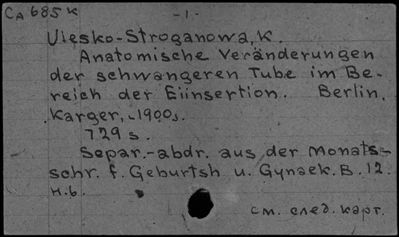 Ca 685 K
-1-
Ulesko-Stroganowa, K.
Anatomische Veränderungen
der schwangeren Tube im Be-
reich der Eiinsertion. Berlin,
Karger, <1900>.
729 s.
Separ.-abdr. aus der Monats-
schr. f. Geburtsh u. Gynaek. B. 12.
H. 6.
см. след. карт.